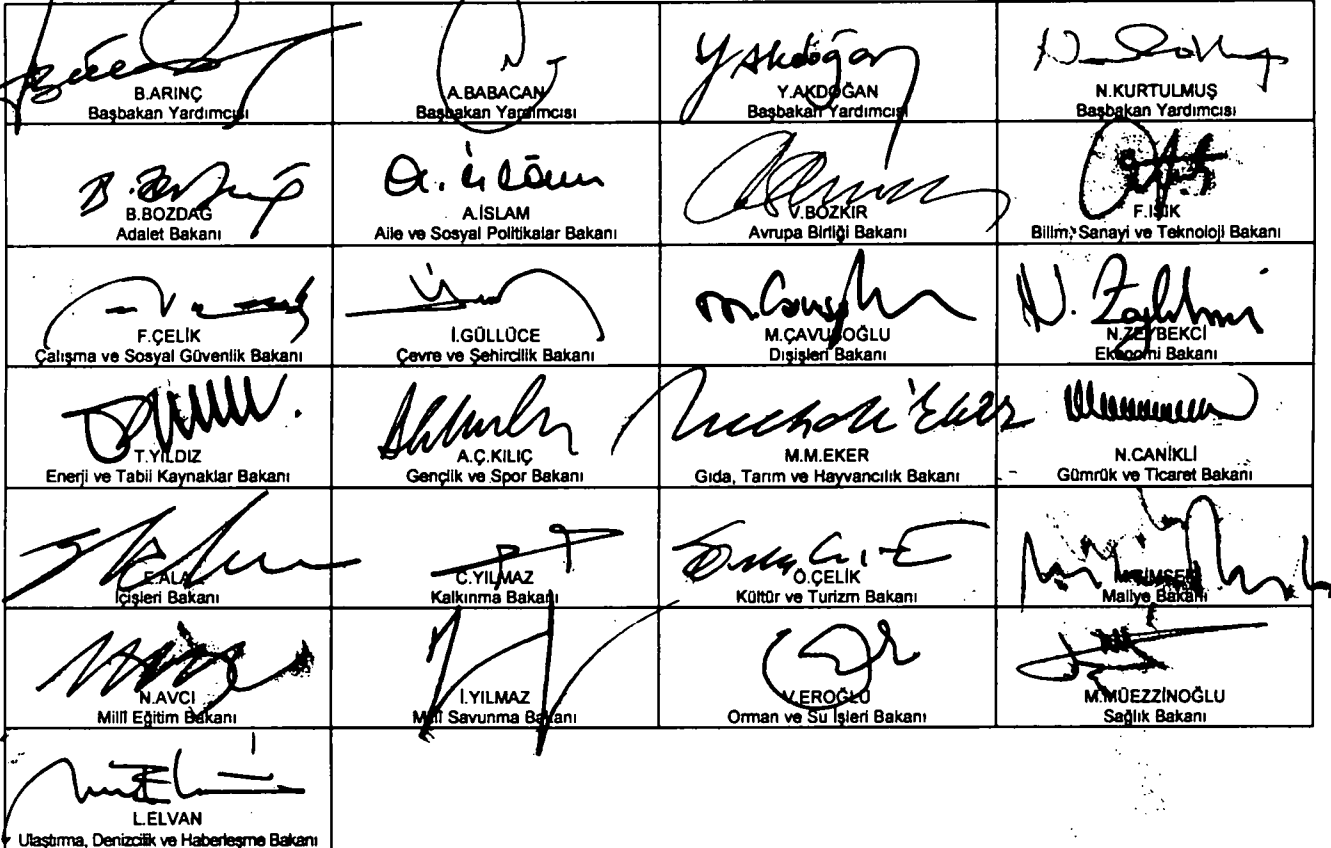 B.ARINÇ
Başbakan Yardımcısı
A.BABACAN
Başbakan Yardımcısı
Y Akdoğan
Y.AKDOĞAN
Başbakan Yardımcısı
N.KURTULMUŞ
Başbakan Yardımcısı
B.BOZDAĞ
Adalet Bakanı
A.İSLAM
Aile ve Sosyal Politikalar Bakanı
V.BOZKIR
Avrupa Birliği Bakanı
F.IŞIK
Bilim, Sanayi ve Teknoloji Bakanı
F.ÇELİK
Çalışma ve Sosyal Güvenlik Bakanı
İ.GÜLLÜCE
Çevre ve Şehircilik Bakanı
M.ÇAVUŞOĞLU
Dışişleri Bakanı
N.ZEYBEKCİ
Ekonomi Bakanı
T.YILDIZ
Enerji ve Tabii Kaynaklar Bakanı
A.Ç.KILIÇ
Gençlik ve Spor Bakanı
M.M.EKER
Gıda, Tarım ve Hayvancılık Bakanı
N.CANİKLİ
Gümrük ve Ticaret Bakanı
E.ALA
İçişleri Bakanı
C.YILMAZ
Kalkınma Bakanı
Ö.ÇELİK
Kültür ve Turizm Bakanı
M.ŞİMŞEK
Maliye Bakanı
N.AVCI
Millî Eğitim Bakanı
İ.YILMAZ
Millî Savunma Bakanı
V.EROĞLU
Orman ve Su İşleri Bakanı
M.MÜEZZİNOĞLU
Sağlık Bakanı
L.ELVAN
Ulaştırma, Denizcilik ve Haberleşme Bakanı